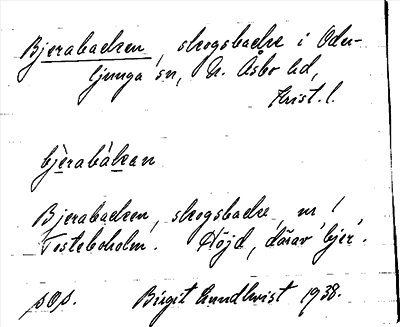 Bjerabacken, skogsbacke i Ode-
ljunga sn, N. Åsbo hd,
Krist. l.
bjèrabákan
Bjerabacken, skogsbacke, nr 1
Tosteboholm. Höjd, därav 'bjer'.
sOs. Birgit Lundkvist 1938.